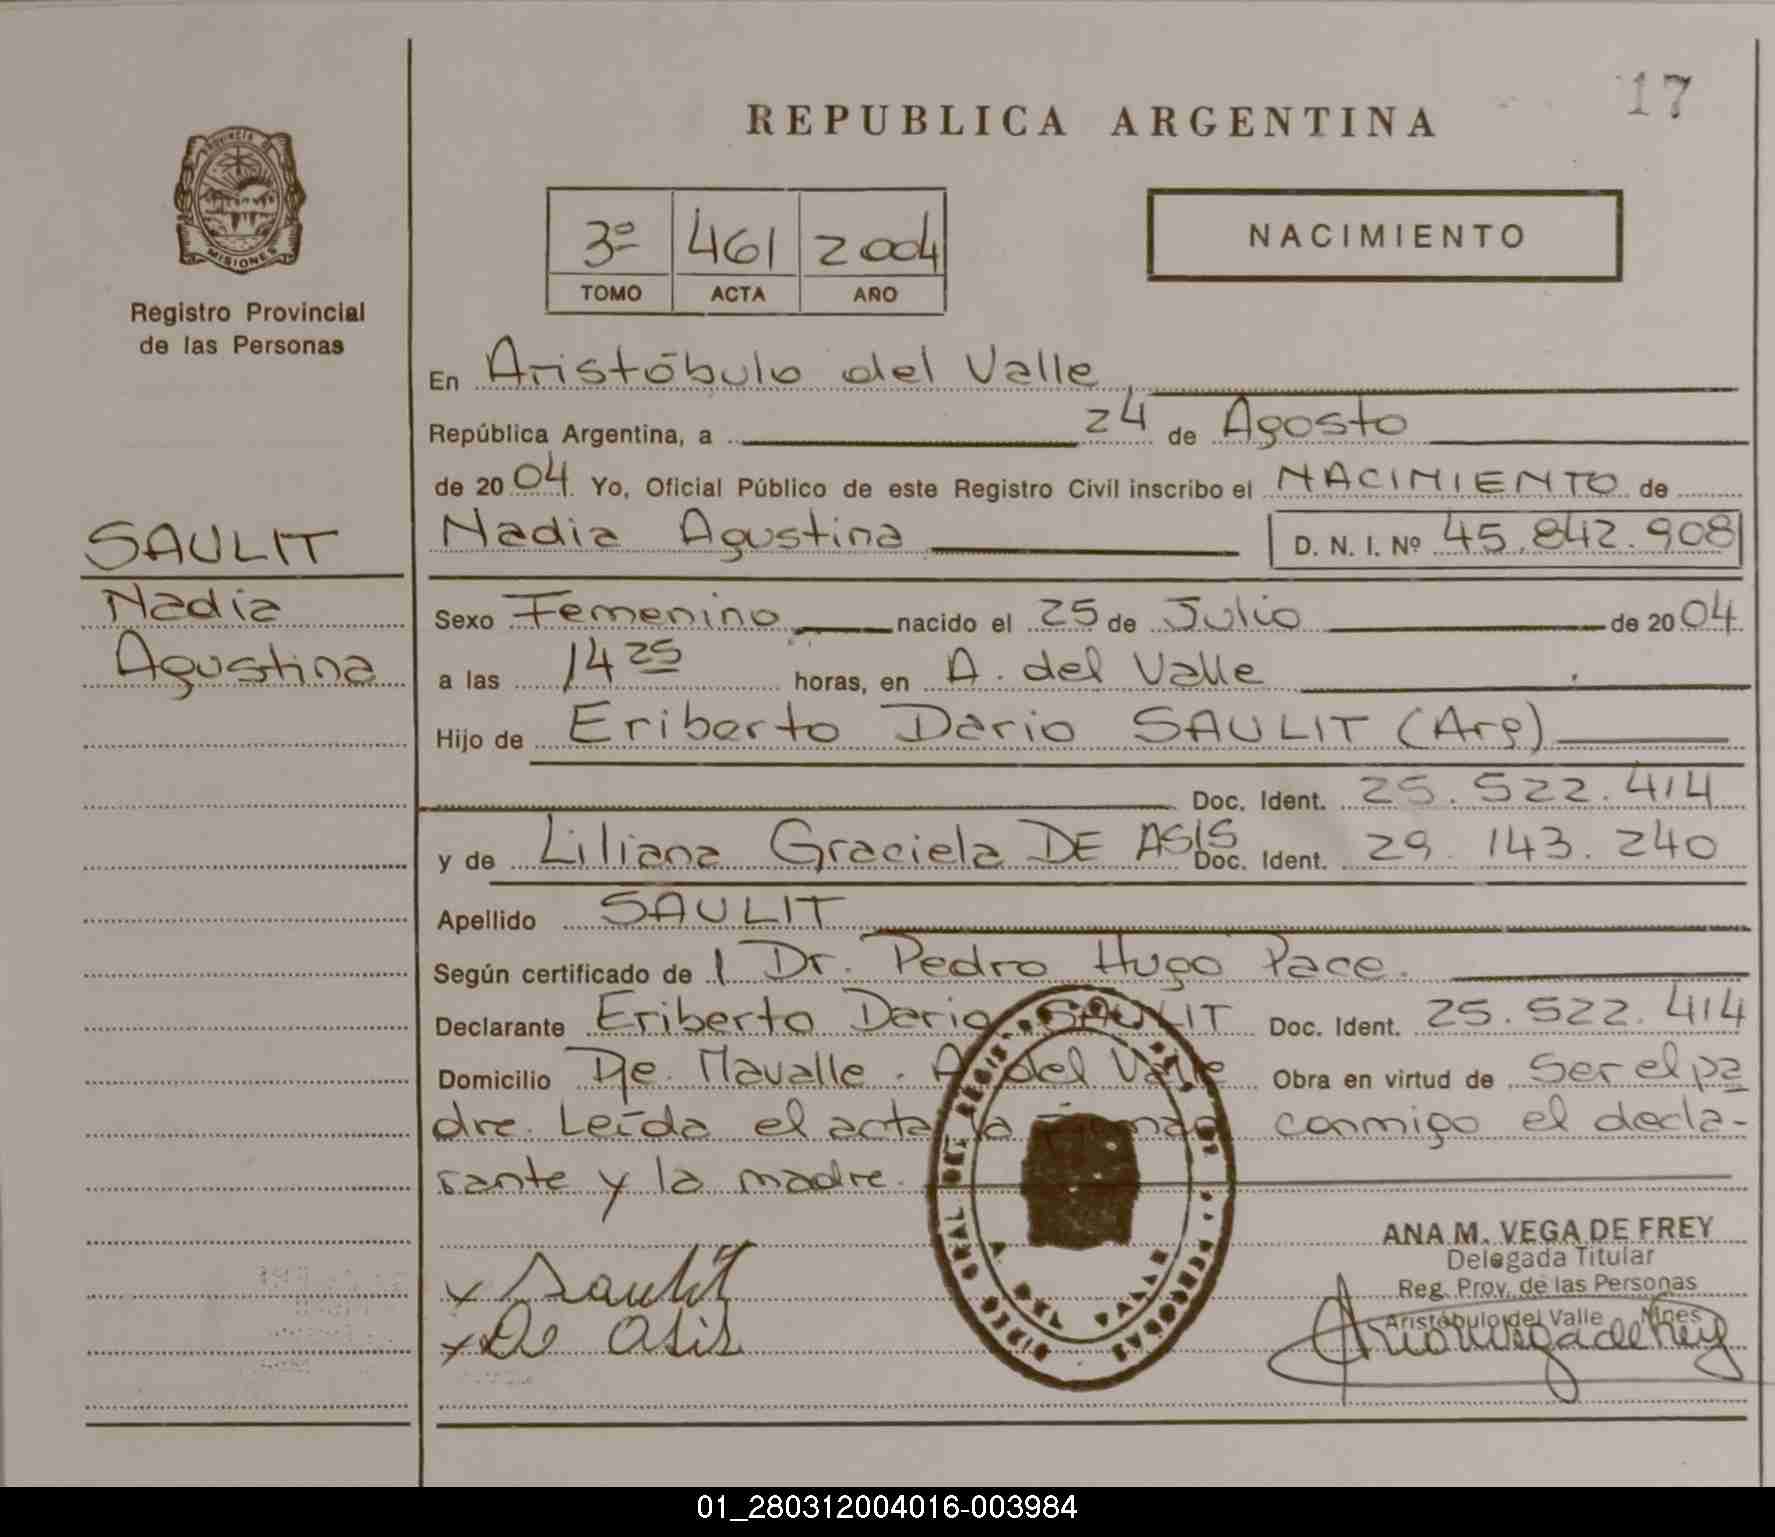 17
REPUBLICA ARGENTINA
PROVINCIA DE
MISIONES
Registro Provincial
de las Personas
3º 461 2004
TOMO ACTA AÑO
NACIMIENTO
En Aristóbulo del Valle
República Argentina, a 24 de Agosto
de 2004 Yo, Oficial Público de este Registro Civil inscribo el NACIMIENTO de
Nadia Agustina D. N. I. Nº 45.842.908
SAULIT
Nadia
Agustina
Sexo Femenino nacido el 25 de Julio de 2004
a las 14 25 horas, en A. del Valle
Hijo de Eriberto Dario SAULIT (Arg)
Doc. Ident. 25.522.414
y de Liliana Graciela DE ASIS Doc. Ident. 29.143.240
Apellido SAULIT
Según certificado de l Dr. Pedro Hugo Pace.
Declarante Eriberto Dario SAULIT Doc. Ident. 25.522.414
Domicilio Pje. Mavalle. A. del Valle Obra en virtud de Ser el pa
dre. Leída el acta la firman conmigo el decla-
rante y la madre.
x Saulit
x De Asis
A. DEL VALLE
ANA M. VEGA DE FREY
Delegada Titular
Reg. Prov. de las Personas
Aristóbulo del Valle Mnes
01_280312004016-003984